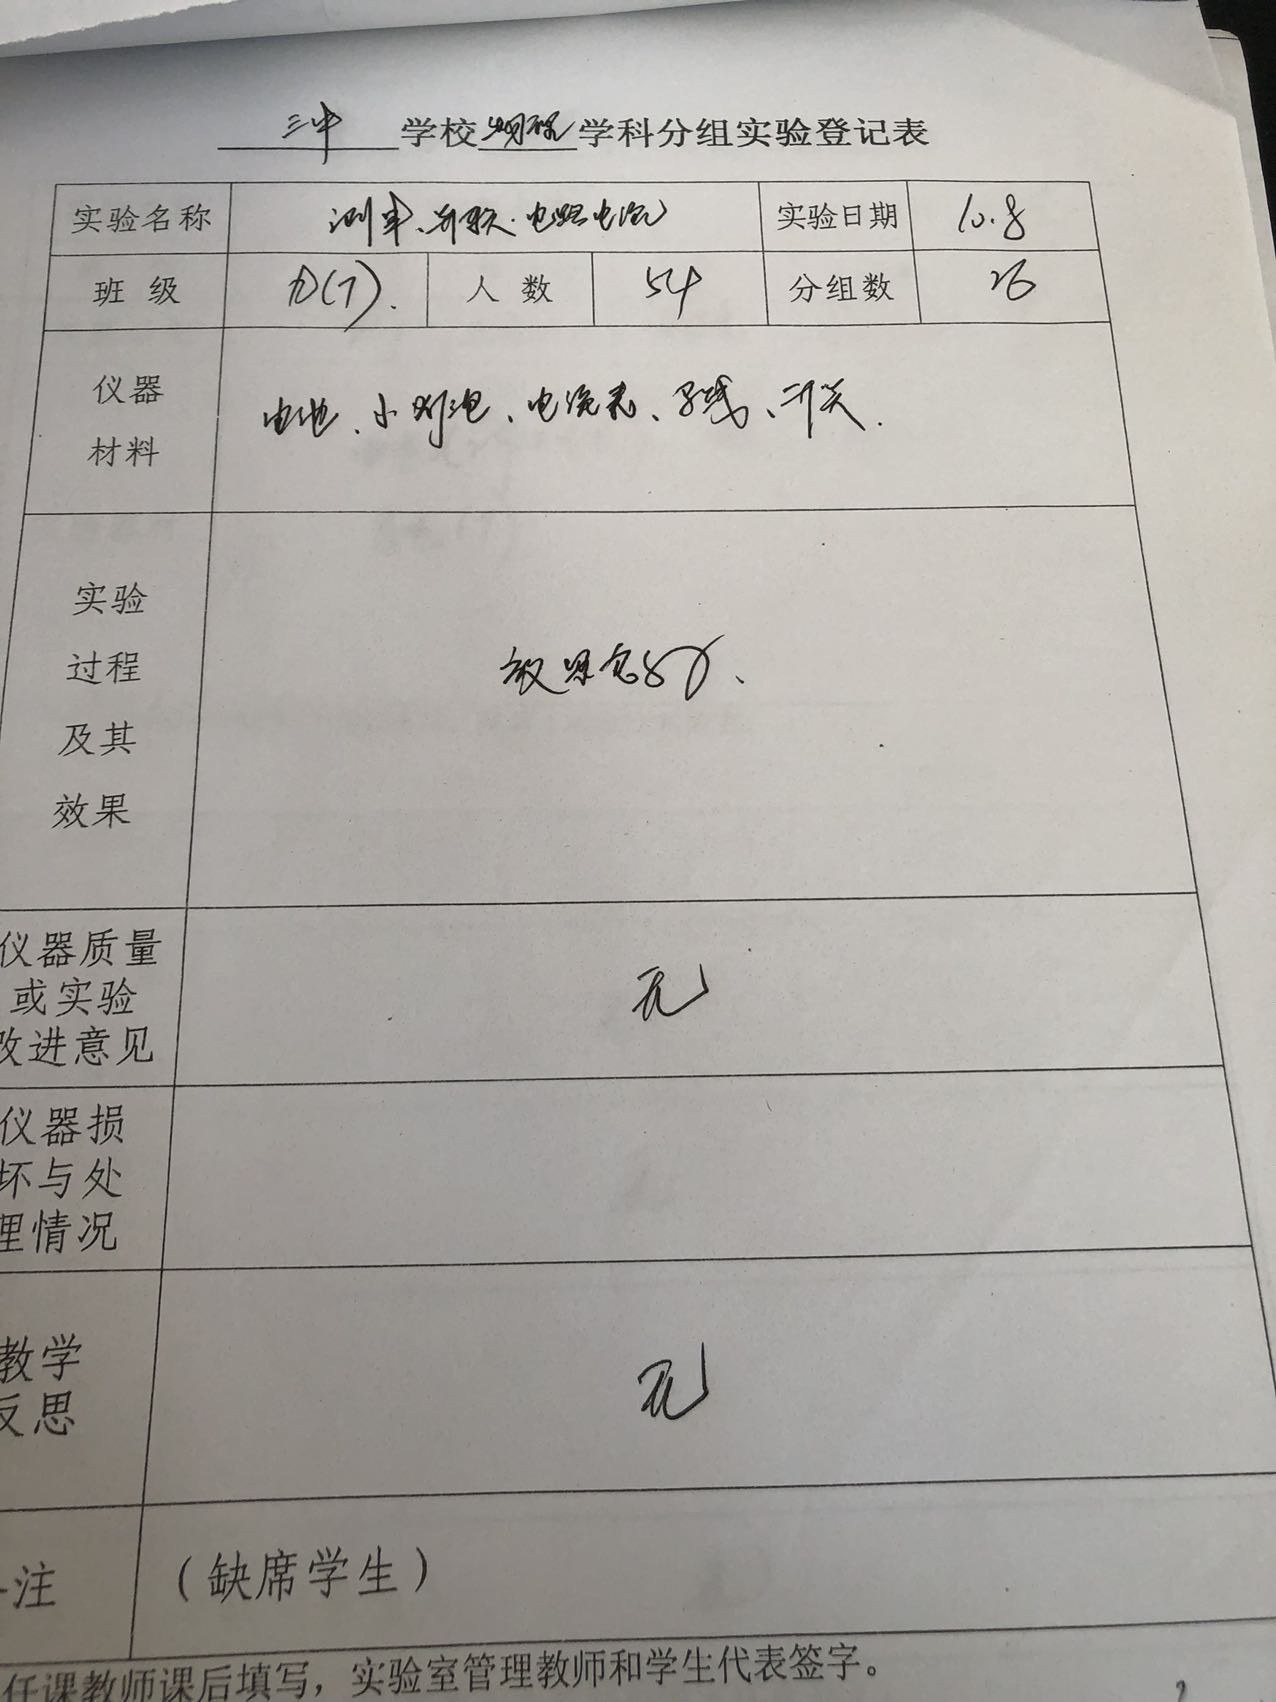 三中 学校 物理 学科分组实验登记表
实验名称 测串、并联电路电流 实验日期 10.8
班级 九(7). 人数 54 分组数 26
仪器
材料
电池、小灯泡、电流表、导线、开关.
实验
过程
及其
效果
效果良好、
仪器质量
或实验
改进意见
无
仪器损
坏与处
理情况
教学
反思
无
注 (缺席学生)
任课教师课后填写，实验室管理教师和学生代表签字。